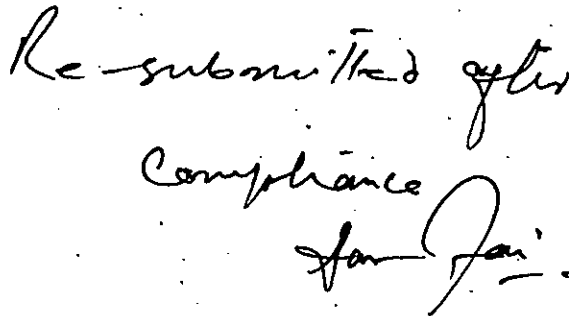 Re-submitted after
compliance